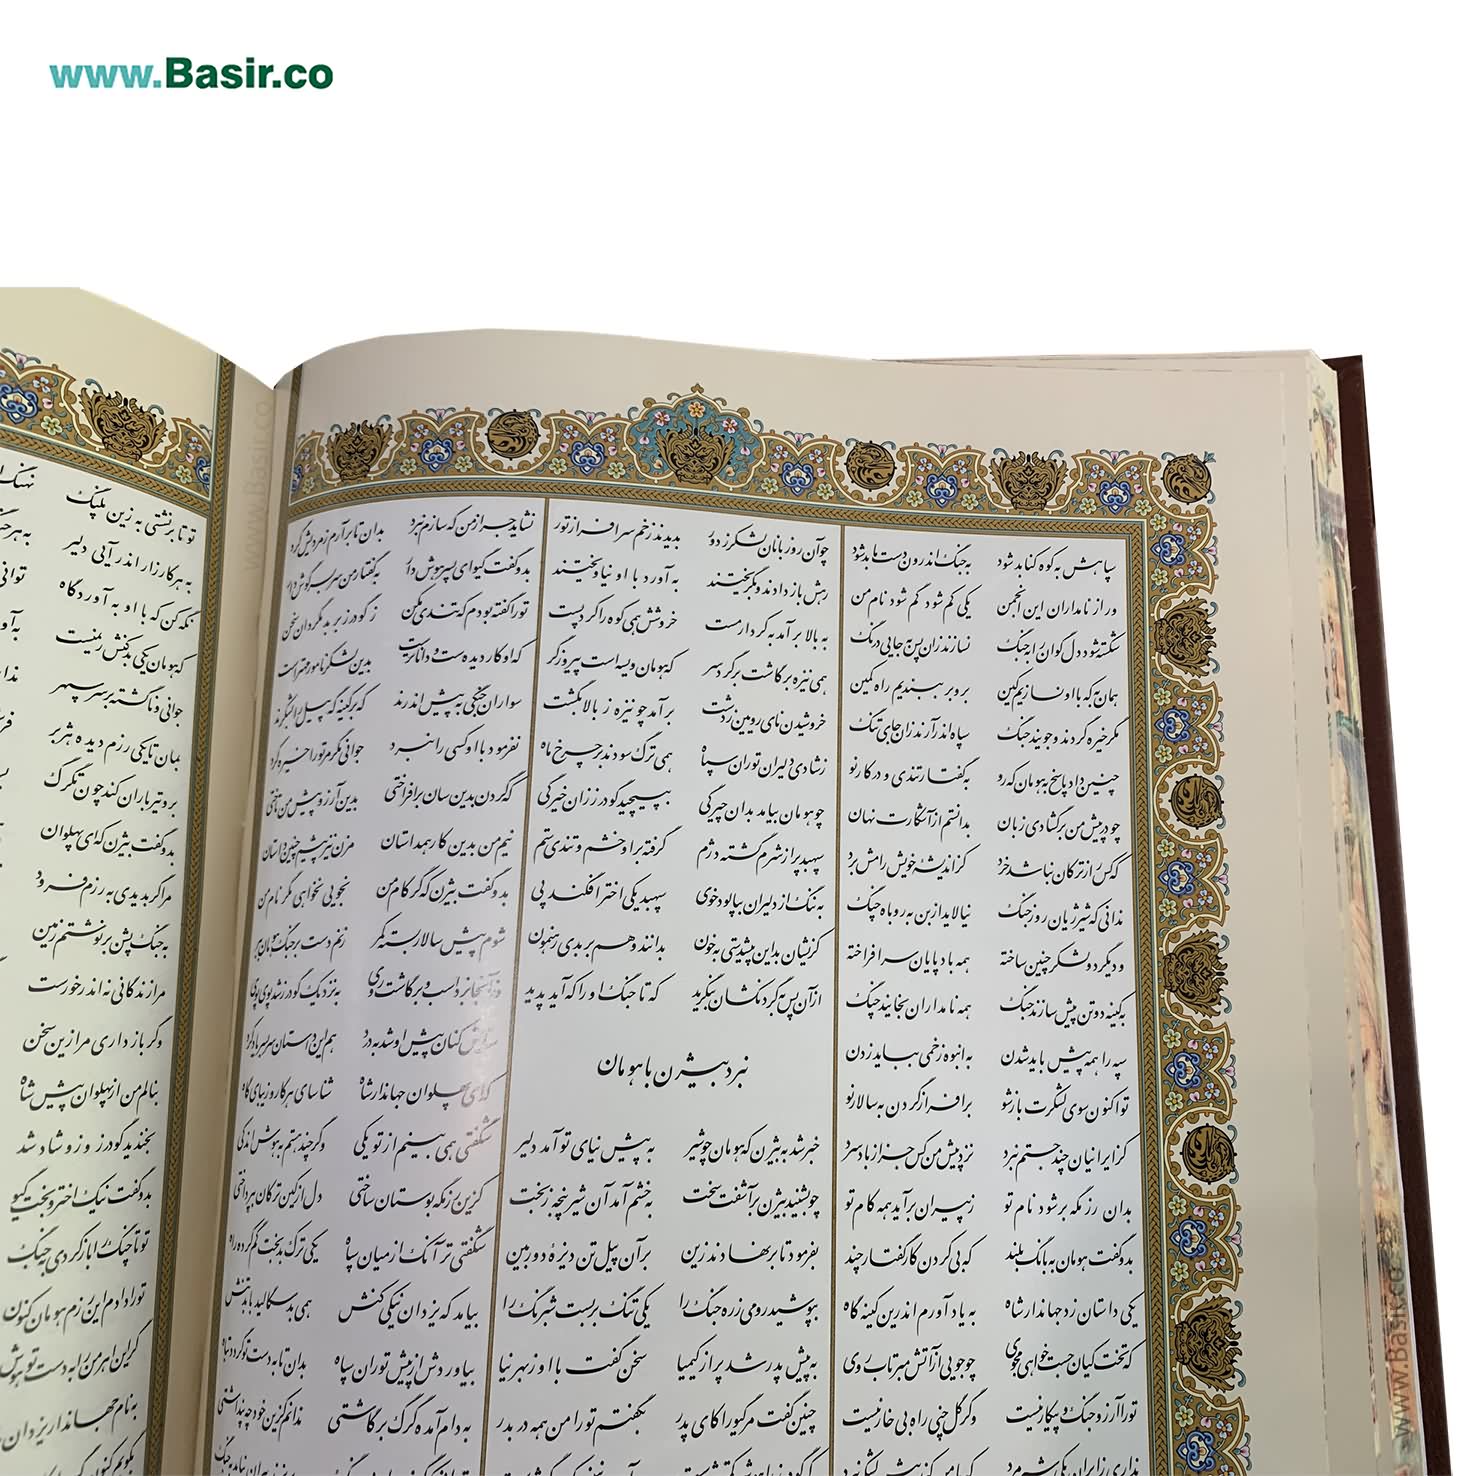 www.Basir.co
سپاهش به کوه کنابد شود به جنگ اندرون دست ما بد شود
ور از نامداران این انجمن یکی کم شود گم شود نام من
شکسته شود دل گوان را به جنگ نسازند زان پس به جایی درنگ
همان به که با او نسازیم کین برو بر ببندیم راه کمین
مگر خیره گردند و جویند جنگ سپاه اندر آرند زان جای تنگ
چنین داد پاسخ به هومان که رو به گفتار تندی و در کار نو
چو در پیش من برگشادی زبان بدانستم از آشکارت نهان
که کس را ز ترکان نباشد خرد کز اندیشهٔ خویش رامش برد
ندانی که شیر ژیان روز جنگ نیالاید از بن به روباه چنگ
و دیگر دو لشکر چنین ساخته همه بادپایان سر افراخته
به کینه دو تن پیش سازند جنگ همه نامداران بخایند چنگ
سپه را همه پیش باید شدن به انبوه زخمی بباید زدن
تو اکنون سوی لشکرت باز شو برافراز گردن به سالار نو
کز ایرانیان چند جستم نبرد نزد پیش من کس جز از باد سرد
بدان رزمگه بر شود نام تو ز پیران برآید همه کام تو
بدو گفت هومان به بانگ بلند که بی کردن کار گفتار چند
یکی داستان زد جهاندار شاه به یاد آورم اندرین کینه گاه
که تخت کیان جست خواهی مجوی چو جویی از آتش مبرتاب روی
تو را آرزو جنگ و پیکار نیست وگر گل چنی راه بی خار نیست
نداری ز ایران یکی شیرمرد
چو آن روزبانان لشکر ز دور بدیدند زخم سرافراز تور
رهش باز دادند و بگریختند به آورد با او نیاویختند
به بالا برآمد به کردار مست خروشش همی کوه را کرد پست
همی نیزه برگاشت بر گرد سر که هومان ویسه است پیروزگر
خروشیدن نای رویین ز دشت برآمد چو نیزه ز بالا بگشت
ز شادی دلیران توران سپاه همی ترگ سودند بر چرخ ماه
چو هومان بیامد بدان چیرگی بپیچید گودرز زان خیرگی
سپهبد پر از شرم گشته دژم گرفته برو خشم و تندی ستم
به ننگ از دلیران بپالود خوی سپهبد یکی اختر افکند پی
کزیشان بد این پیشدستی به خون بدانند و هم بر بدی رهنمون
از آن پس به گردنکشان بنگرید که تا جنگ او را که آید پدید
نبرد بیژن با هومان
خبر شد به بیژن که هومان چو شیر به پیش نیای تو آمد دلیر
چو بشنید بیژن برآشفت سخت به خشم آمد آن شیر پنجه ز بخت
بفرمود تا برنهادند زین بر آن پیل تن دیزهٔ دوربین
بپوشید رومی زره جنگ را یکی تنگ بربست شبرنگ را
به پیش پدر شد پر از کیمیا سخن گفت با او ز بهر نیا
چنین گفت مر گیو را کای پدر بگفتم تو را من همه در به در
نشاید جز از من که سازم نبرد بدان تا برآرم ز مردیش گرد
بدو گفت گیو ای پسر هوش دار به گفتار من سر به سر گوش دار
تو را گفته بودم که تندی مکن ز گودرز بر بد مگردان سخن
که او کاردیده ست و داناترست بدین لشکر نامور مهترست
سواران جنگی به پیش اندرند که بر کینه گه پیل را بشکرند
نفرمود با او کسی را نبرد جوانی مگر مر تو را خیره کرد
که گردن بدین سان برافراختی بدین آرزو پیش من تاختی
نیم من بدین کار همداستان مزن نیز پیشم چنین داستان
بدو گفت بیژن که گر کام من نجویی نخواهی مگر نام من
شوم پیش سالار بسته کمر زنم دست بر جنگ هومان به بر
وز آنجا بزد اسب و برگاشت روی به نزدیک گودرز شد پوی پوی
ستایش کنان پیش او شد به درد هم این داستان سر به سر یاد کرد
که ای پهلوان جهاندار شاه شناسای هر کار و زیبای گاه
شگفتی همی بینم از تو یکی وگر چند هستم به هوش اندکی
کزین رزمگه بوستان ساختی دل از کین ترکان بپرداختی
شگفتی تر آنک از میان سپاه یکی ترک بدبخت گم کرده راه
بیامد که یزدان نیکی کنش همی بد سگالید با بد تنش
بیاوردش از پیش توران سپاه بدان تا به دست تو گردد تباه
به دام آمده گرگ برگاشتی ندانم کزین خود چه پنداشتی
تو تا برنشستی به زین پلنگ نهنگ
به هر کارزار اندر آیی دلیر به هر جنگ
نگه کن که با او به آوردگاه توانی
که هومان یکی بدکنش ریمنست به آورد
جوانی و ناگشته بر سر سپهر
بمان تا یکی رزم دیده هژبر
برو تیرباران کند چون تگرگ
بدو گفت بیژن که ای پهلوان
مرا گر بدیدی به رزم فرود
به جنگ پشن برنوشتم زمین
مرا زندگانی نه اندر خورست
وگر باز داری مرا زین سخن
بنالم من از پهلوان پیش شاه
بخندید گودرز و زو شاد شد
بدو گفت نیک اختر و بخت گیو
تو تا چنگ را باز کردی به جنگ
تو را دادم این رزم هومان کنون
گر این اهرمن را به دست تو هوش
به نام جهاندار یزدان
بگویم کنون
www.Basir.co
www.Basir.co